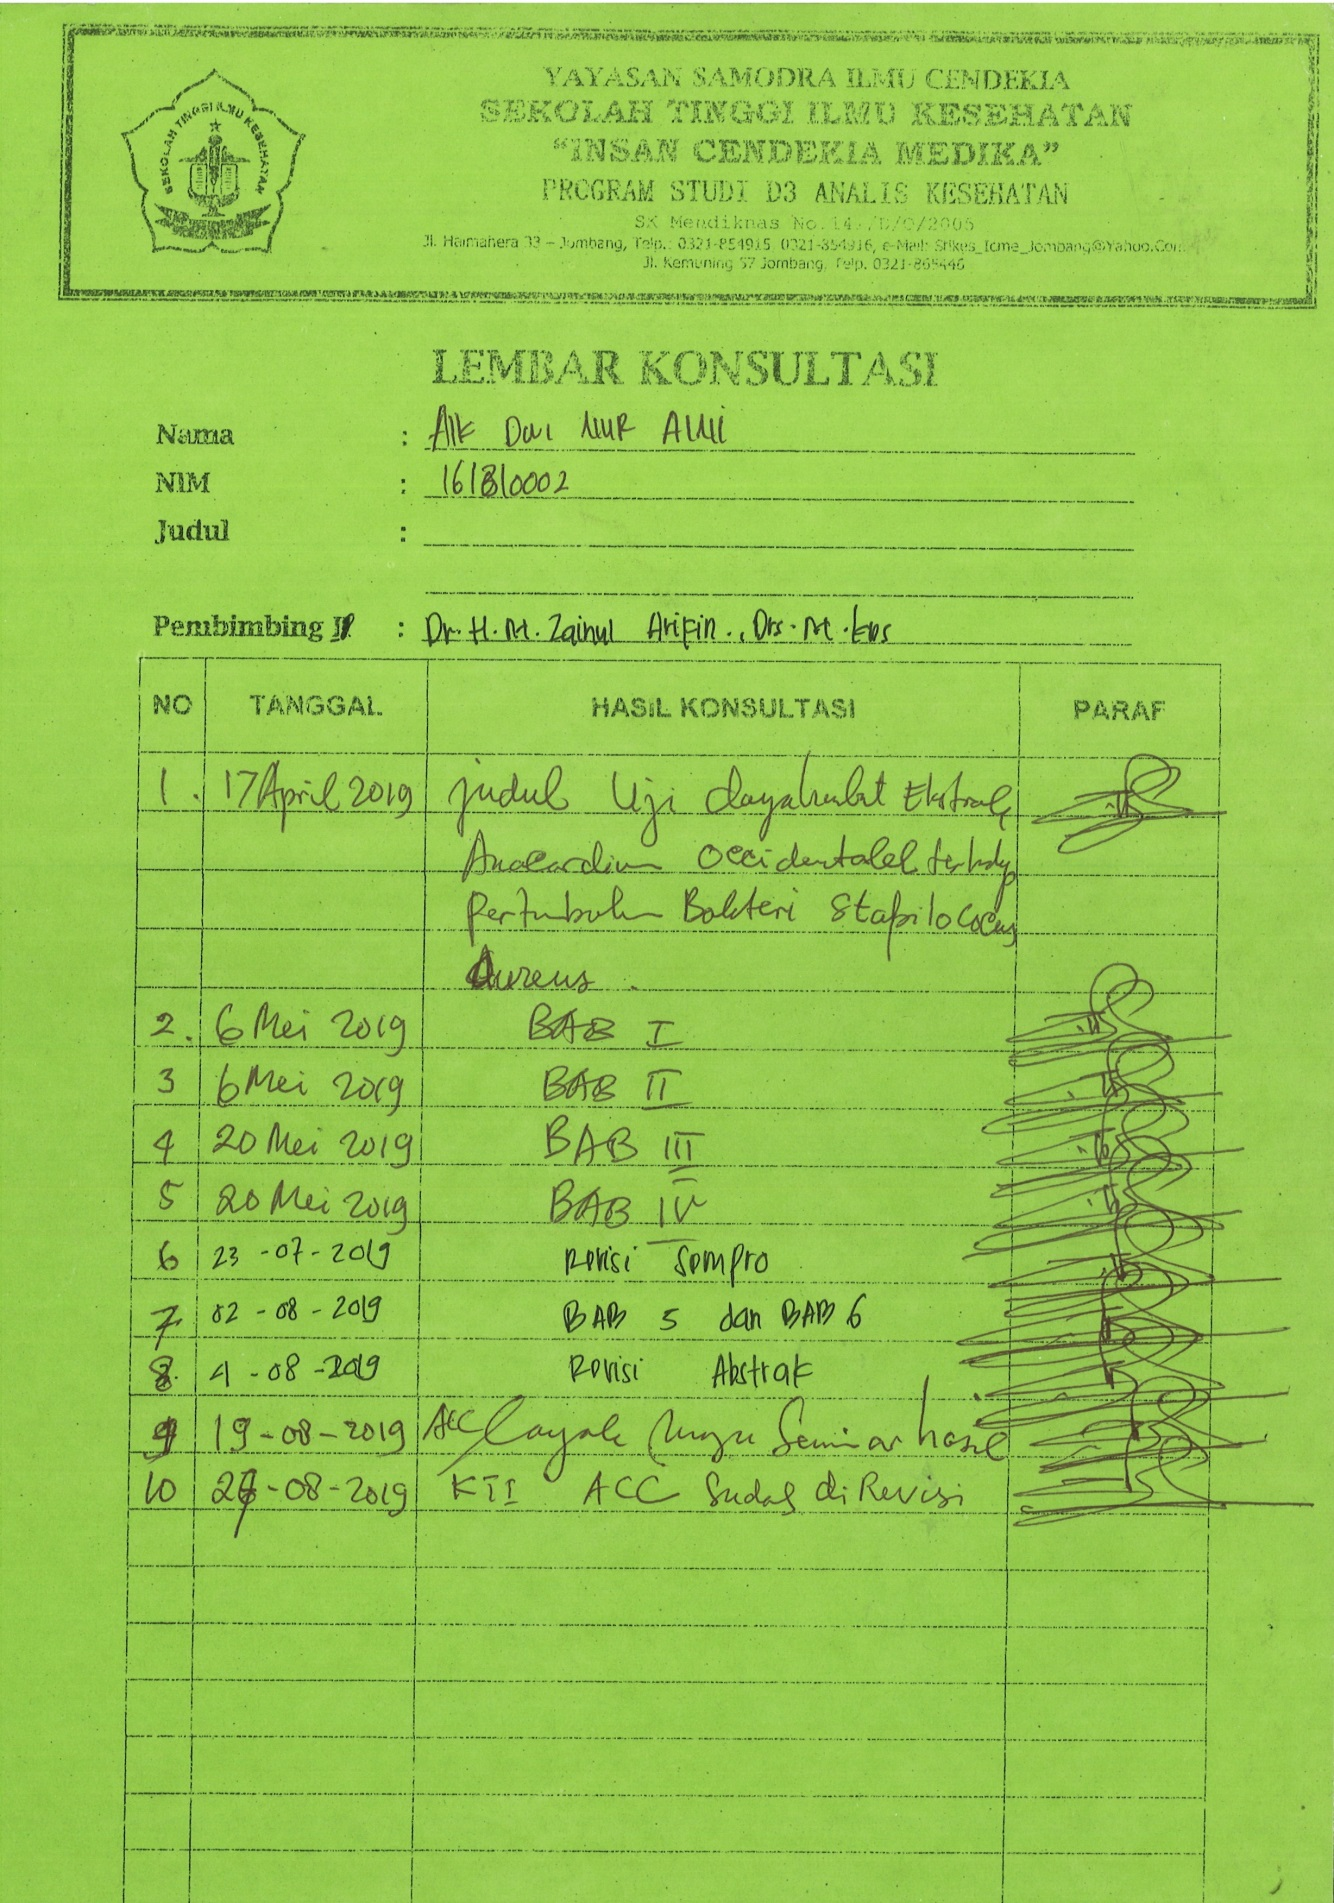 SEKOLAH TINGGI ILMU KESEHATAN
YAYASAN SAMODRA ILMU CENDEKIA
SEKOLAH TINGGI ILMU KESEHATAN
“INSAN CENDEKIA MEDIKA”
PROGRAM STUDI D3 ANALIS KESEHATAN
SK Mendiknas No. /D/O/2005
Jl. Halmahera 33 – Jombang, Telp.: 0321-854915, 0321-854916, e-Mail: Stikes_Icme_Jombang@Yahoo.Com
Jl. Kemuning 57 Jombang, Telp. 0321-865446
LEMBAR KONSULTASI
Nama : NUR
NIM : 161310002
Judul :
Pembimbing : Dr. H. M. Zainul Arifin., Drs. M. Kes
NO TANGGAL HASIL KONSULTASI PARAF
1. 17 April 2019 judul Uji dayahambat Ekstrak
Anacardium Occidentalel terhadap
Pertumbuhan Bakteri Stapilococus
Aureus.
2. 6 Mei 2019 BAB I
3 6 Mei 2019 BAB II
4 20 Mei 2019 BAB III
5 20 Mei 2019 BAB IV
6 23-07-2019 Revisi Sempro
7 02-08-2019 BAB 5 dan BAB 6
8. 4-08-2019 Revisi Abstrak
9 19-08-2019 ACC layak Seminar hasil
10 -08-2019 KTI ACC Sudah di Revisi